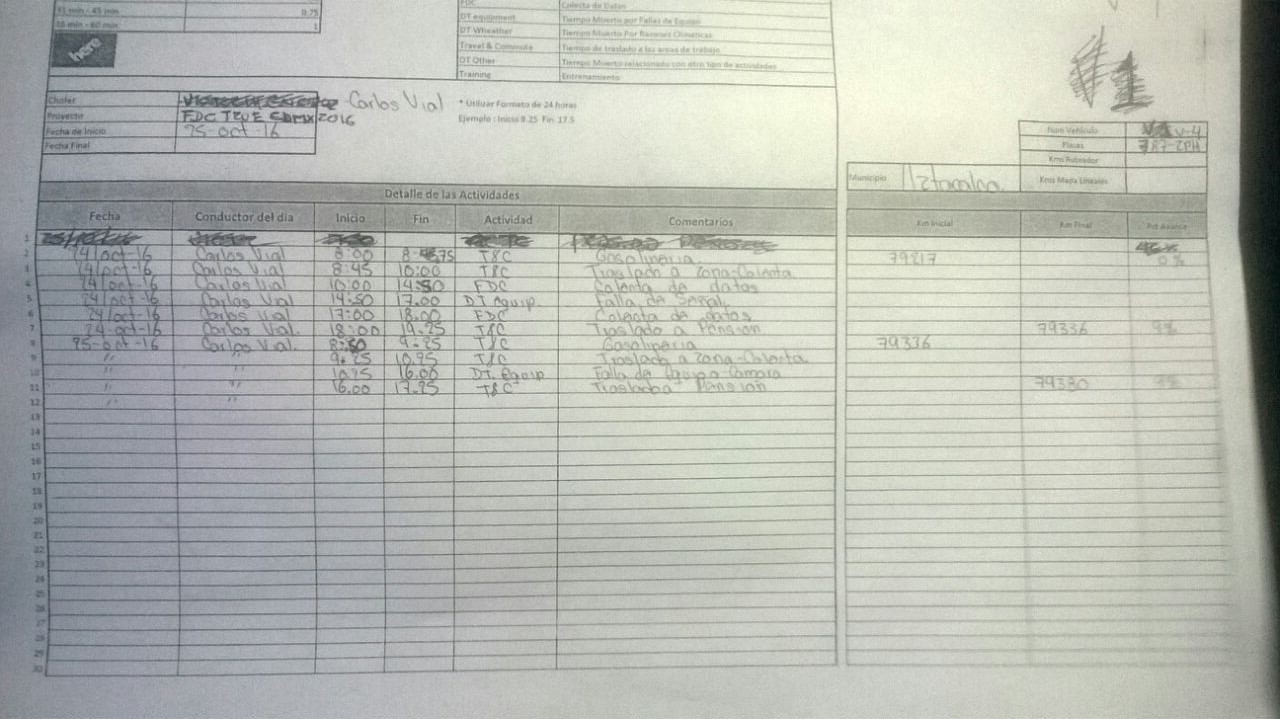 31 min - 45 min 0.75
1
here
FDC Colecta de Datos
DT equipment Tiempo Muerto por Fallas de Equipo
DT Wheather Tiempo Muerto Por Razones Climaticas
Travel & Commute Tiempo de traslado a las areas de trabajo
DT Other Tiempo Muerto relacionado con otro tipo de actividades
Training Entrenamiento
V1
Chofer Carlos Vial
Proyecto FDC TRUE CDMX 2016
Fecha de Inicio 25-oct-16
Fecha Final
* Utilizar Formato de 24 horas
Ejemplo : Inicio 8.25 Fin 17.5
Num Vehículo V-4
Placas 787-ZPH
Kms Ruteador
Municipio Iztacalco Kms Mapa Lineales
Detalle de las Actividades
Fecha Conductor del dia Inicio Fin Actividad Comentarios Km Inicial Km Final
1
2 24/oct-16 Carlos Vial 8:00 T&C Gasolineria 79217 0%
3 24/oct-16 Carlos Vial 8:45 10:00 T&C Traslado a Zona-Colecta
4 24/oct-16 Carlos Vial 10:00 14:50 FDC Colecta de datos
5 24/oct-16 Carlos Vial 14:50 17.00 DT equip. Falla de Señal.
6 24/oct-16 Carlos Vial 17:00 18.00 FDC Colecta de datos
7 24-oct-16 Carlos Vial. 18:00 19.25 T&C Traslado a Pension 79336
8 25-oct-16 Carlos Vial. 8:50 9.25 T&C Gasolineria 79336
9 " " 9.25 10.25 T&C Traslado a Zona-Colecta
10 " 10.25 16.00 DT. Equip Falla de Equipo-Camara
11 " " 16.00 17.25 T&C Traslado a Pension 79380
12 " "
13
14
15
16
17
18
19
20
21
22
23
24
25
26
27
28
29
30